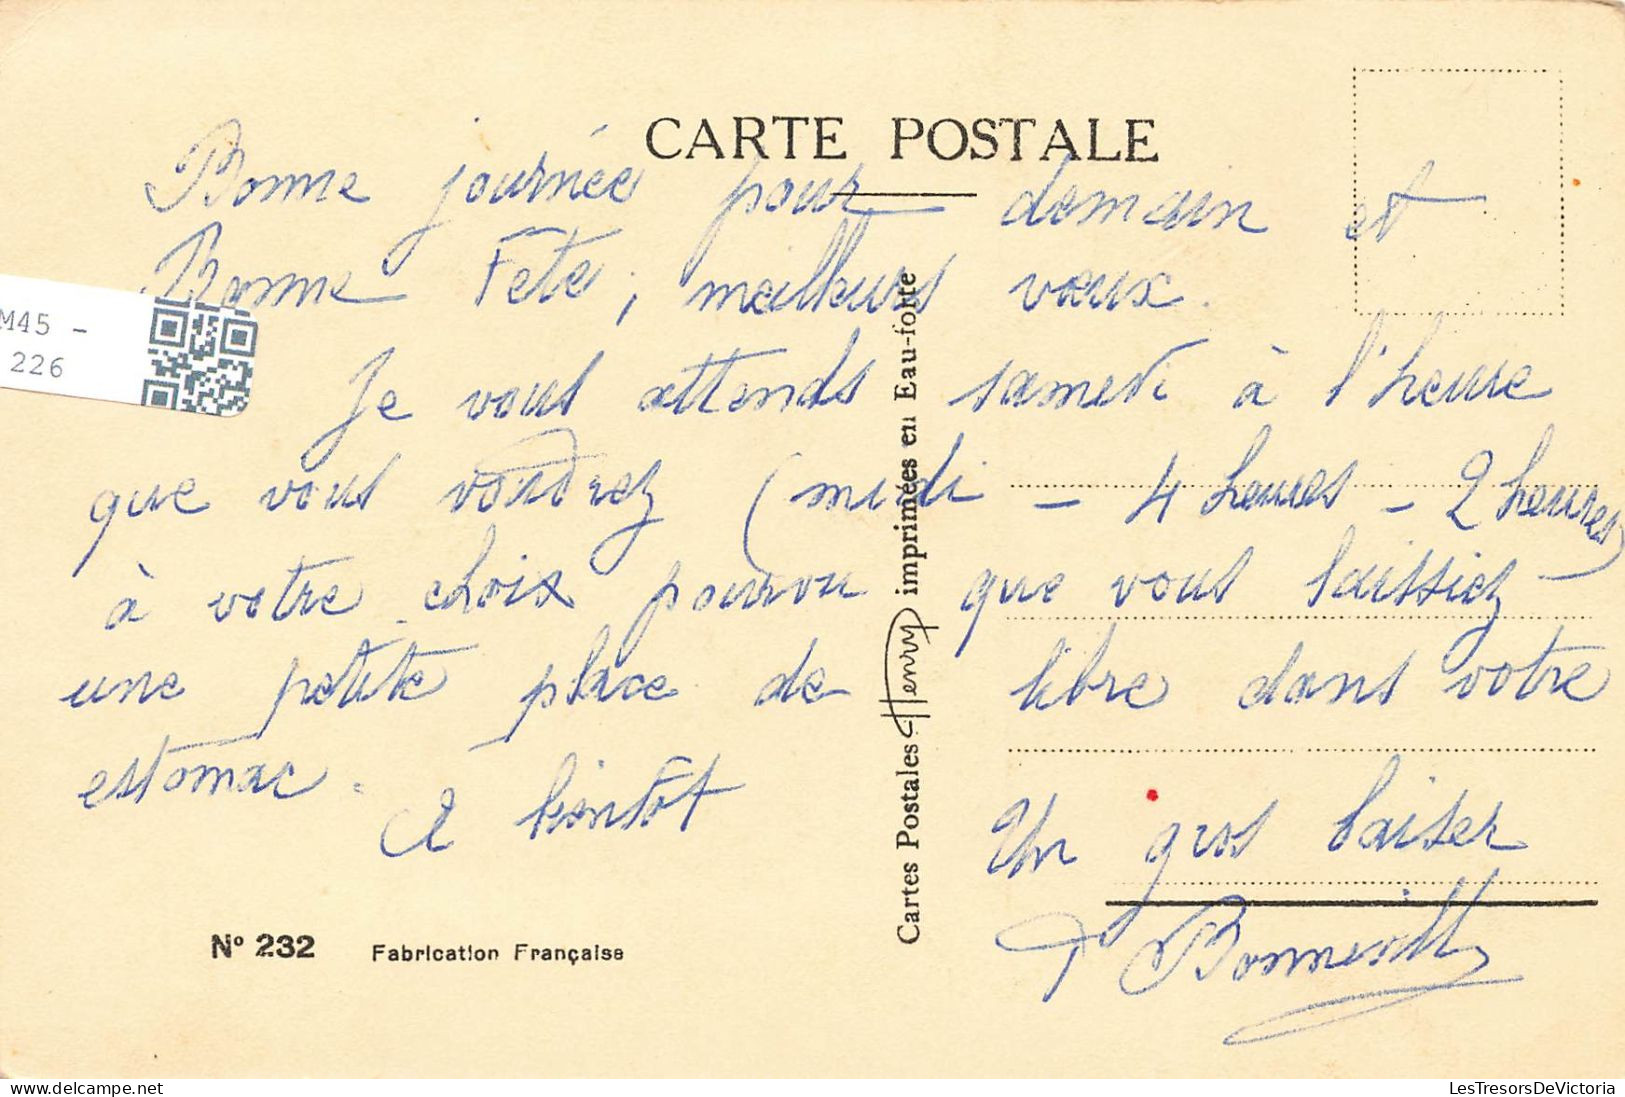 CARTE POSTALE
Bonne journée pour demain et
Bonne Fête, meilleurs vœux.
Je vous attends samedi à l'heure
que vous voudrez (midi - 4 heures - 2 heures)
à votre choix pourvu que vous laissiez -
une petite place de libre dans votre
estomac.
A bientôt
Un gros baiser
Bonneville
Cartes Postales Henry imprimées en Eau-forte
N° 232 Fabrication Française
M45 -
226
LesTresorsDeVictoria